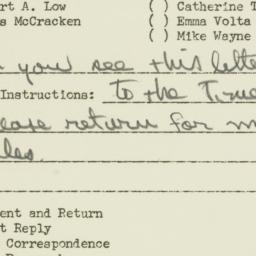 rt A. Low ( ) Catherine T
s McCracken ( ) Emma Volta
( ) Mike Wayne
you see this lette
Instructions: to the Times
ease return for m
les.
ent and Return
t Reply
Correspondence